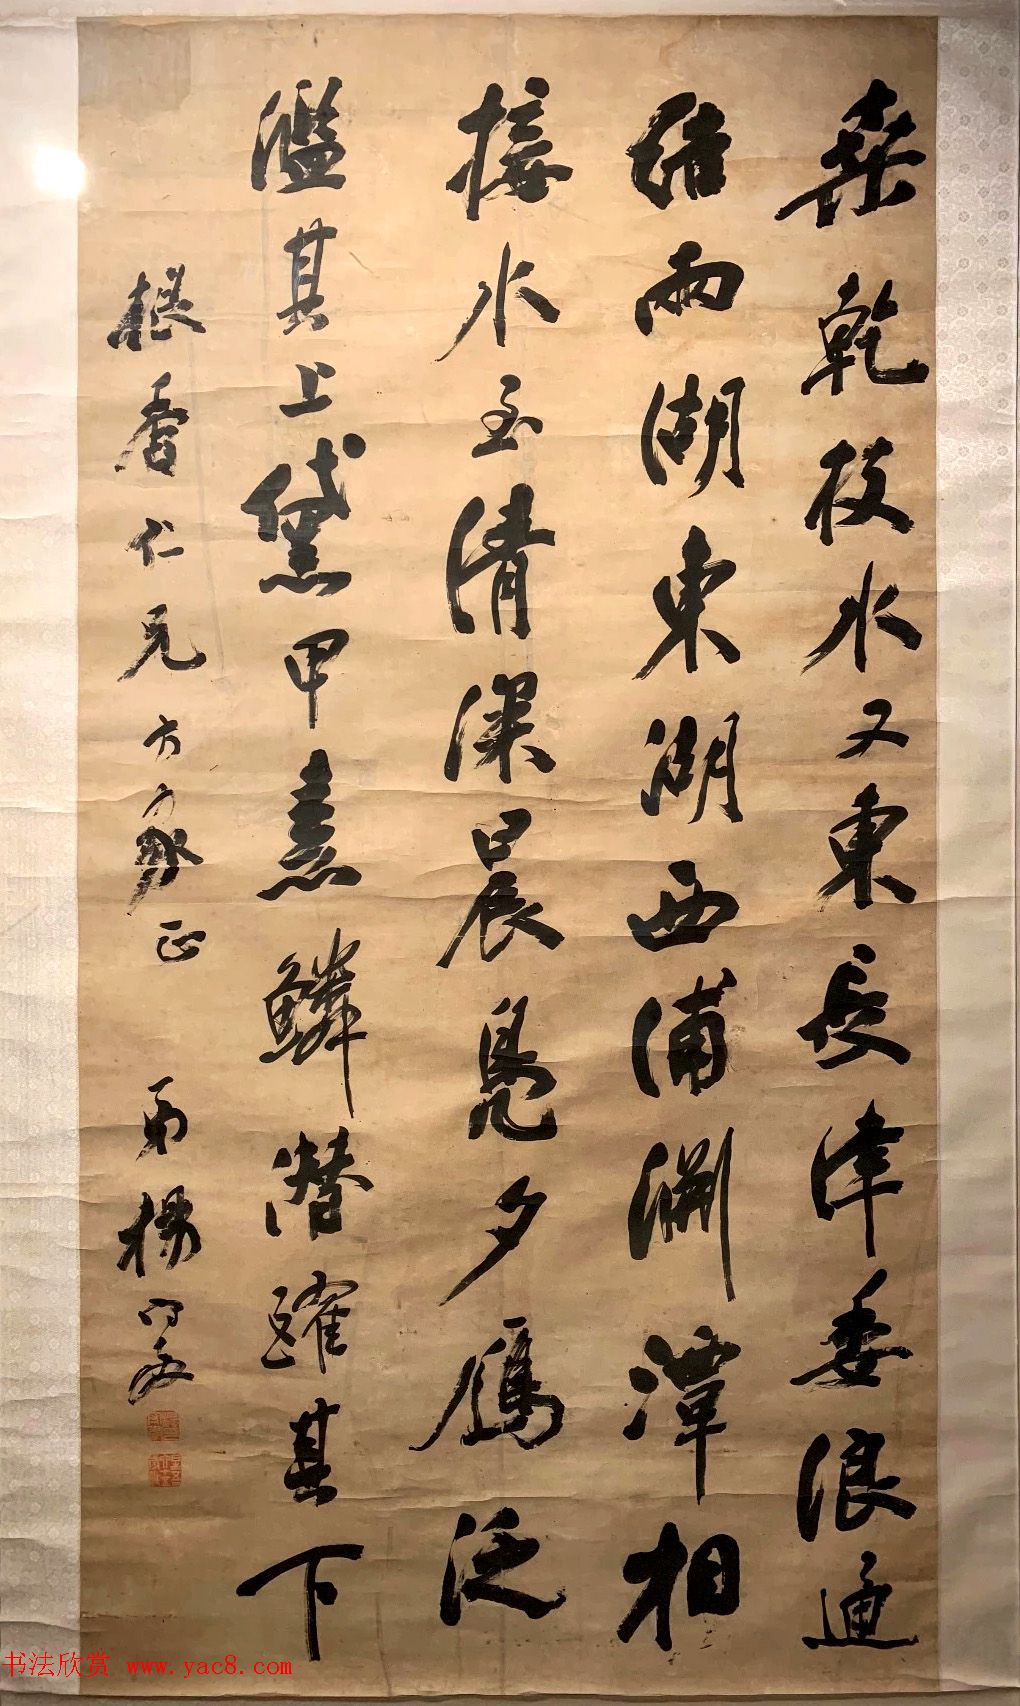 桑乾枝水又東長津委浪通
結兩湖東湖西浦淵潭相
接水至清深晨鳧夕鴈泛
濫其上黛甲素鱗潛躍其下
香仁兄方家正 弟楊守敬
书法欣赏 www.yac8.com